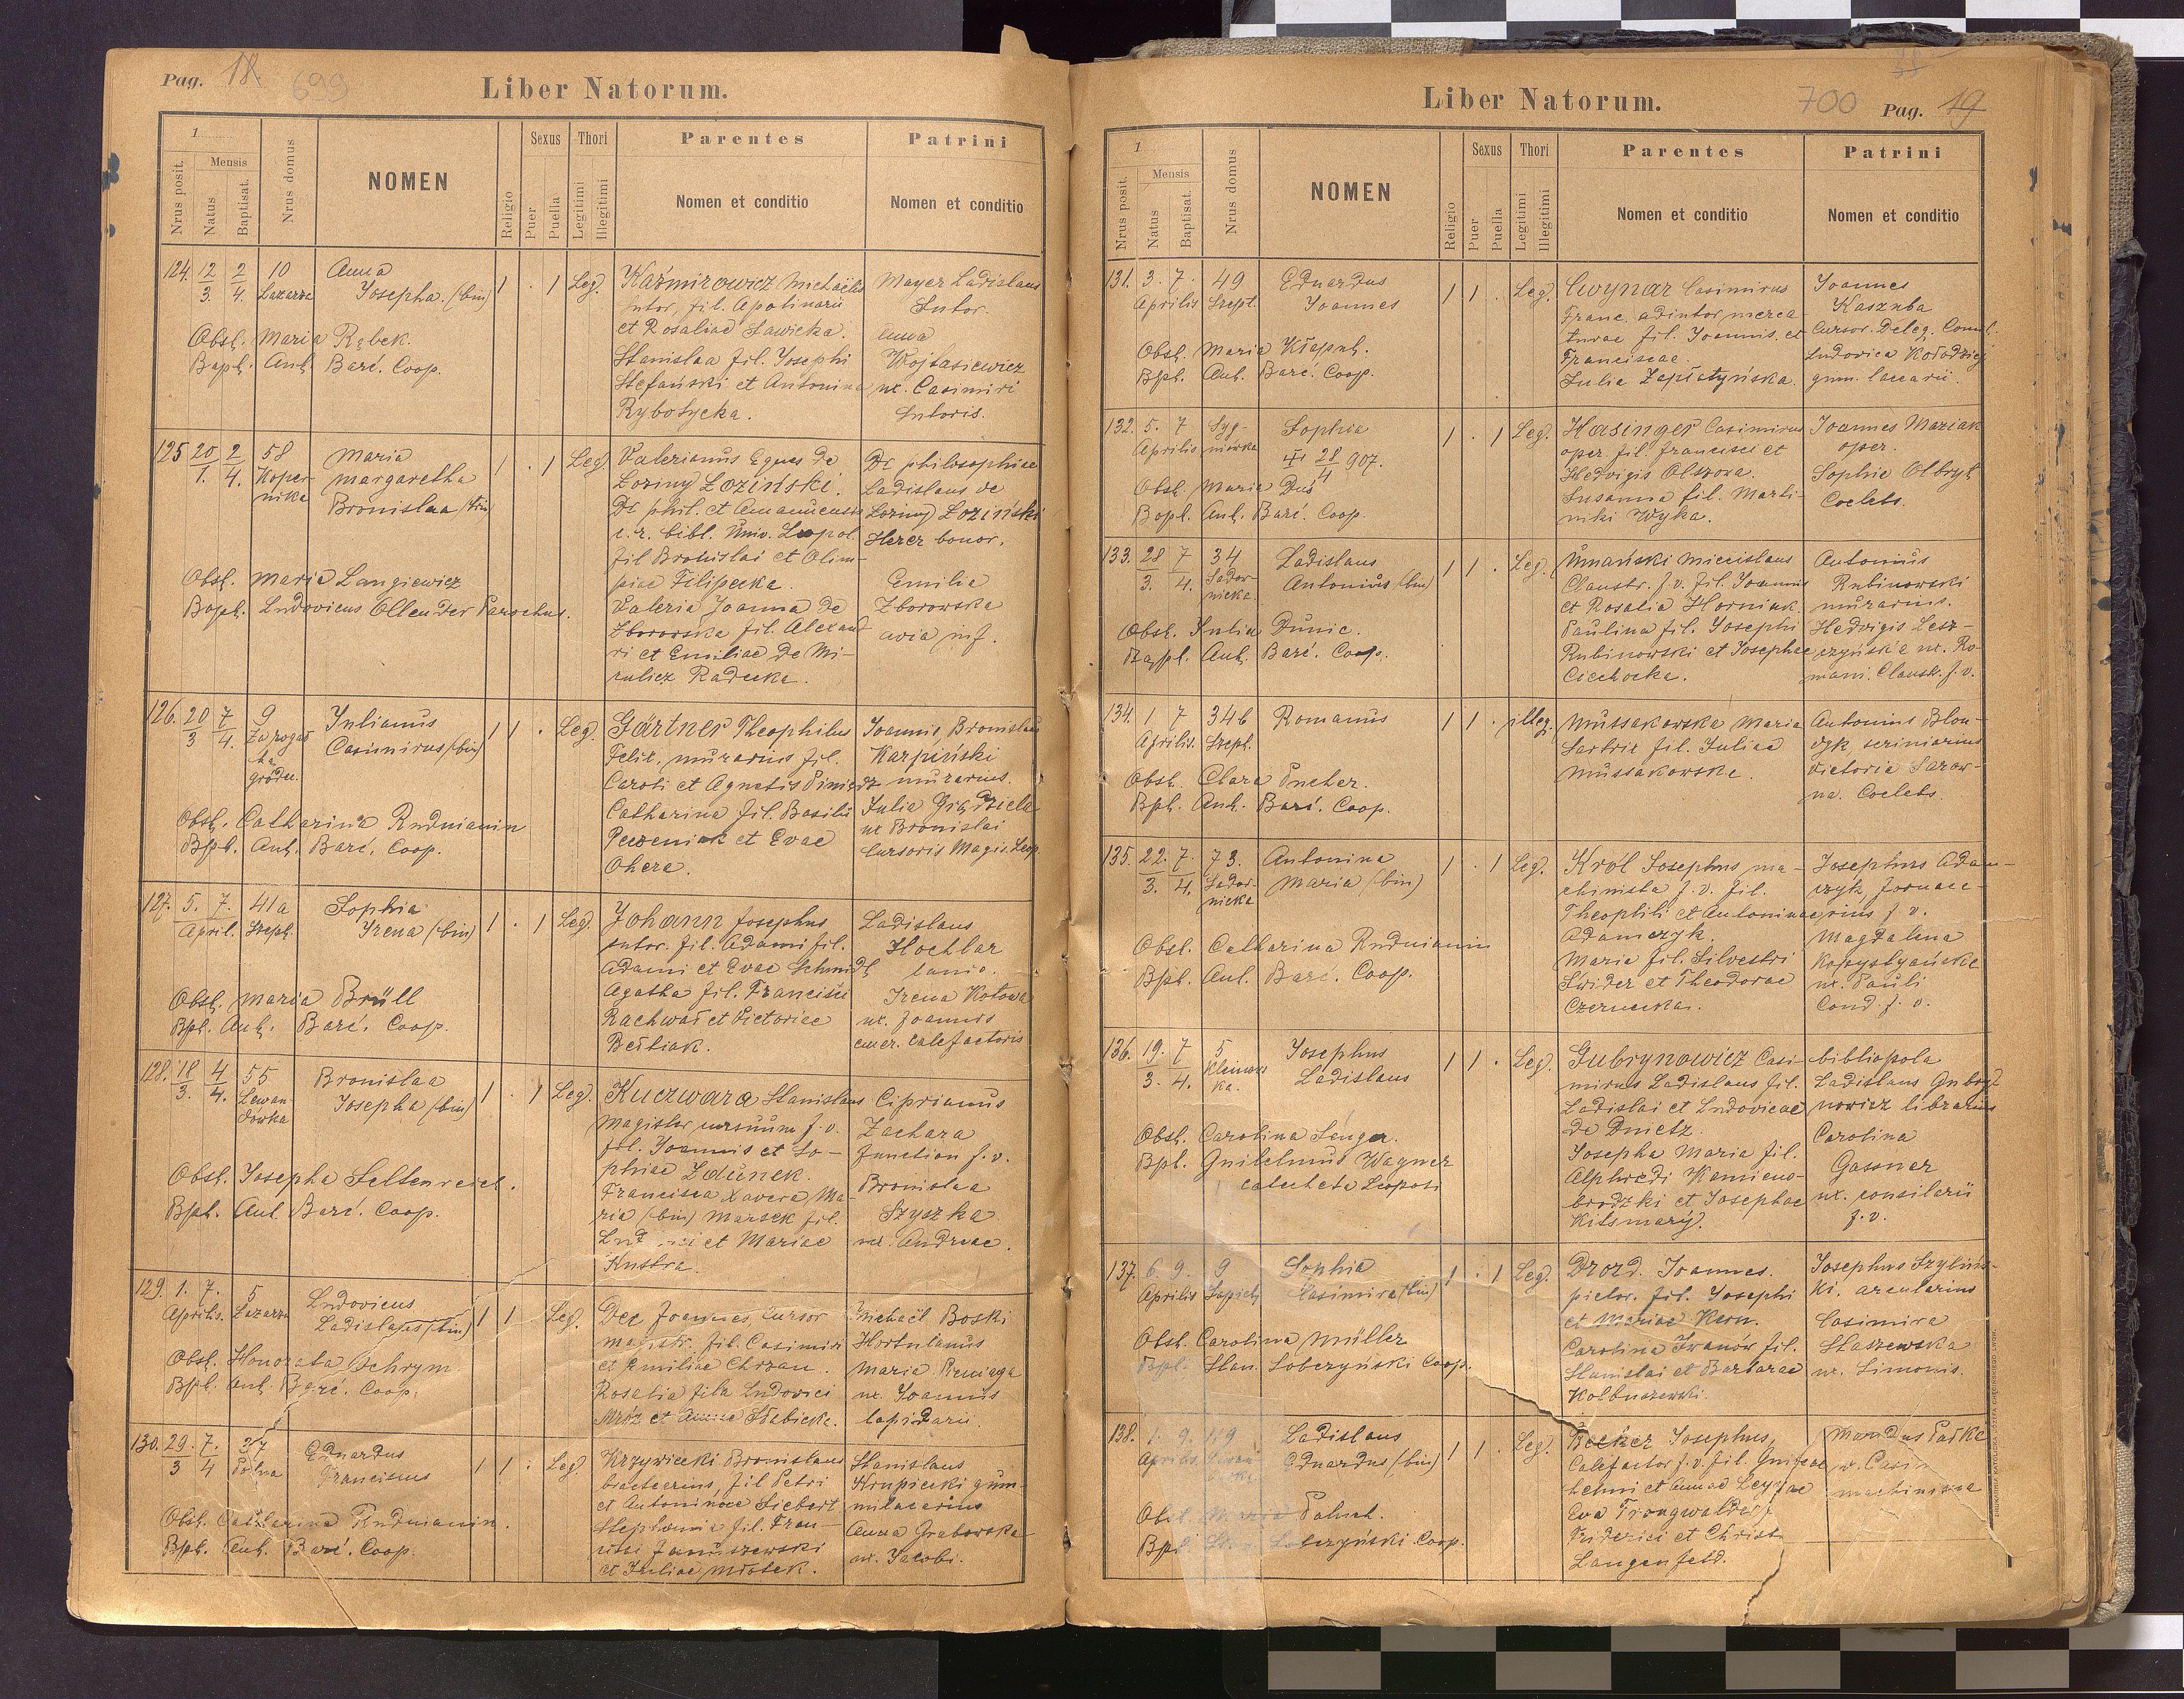 Pag. 18. 699
Liber Natorum.
1
Mensis
Nrus posit.
Natus
Baptisat.
Nrus domus
NOMEN
Religio
Sexus
Puer
Puella
Thori
Legitimi
Illegitimi
Parentes
Nomen et conditio
Patrini
Nomen et conditio
124. 12/3. 2/4. 10 Lazarza
Anna
Josepha. (bin)
1 . 1 Leg.
Obst. Maria Rębek.
Bapt. Ant. Barć. Coop.
Kaźmirowicz Michaëlis
sutor, fil. Apolinarii
et Rosaliae Sawicka.
Stanislaa fil. Josephi
Stefański et Antonina
Rybotycka.
Mayer Ladislaus
Sutor.
Anna
Wojtasiewicz
ux. Casimiri
sutoris.
125 20/1. 2/4. 58 Kopernika
Maria
Margaretha
Bronislaa (trin)
1 . 1 Leg.
Obst. Maria Langiewicz
Bapt. Ludovicus Ollender Parochus.
Valerianus Eques de
Loziny Łoziński.
Dr phil. et Amanuensis
c. r. bibl. Univ. Leopol.
fil Bronislai et Olim-
piae Filipecka.
Valeria Joanna de
Zborowska fil. Alexand
ri et Emiliae de Mi-
culicz Radecka.
Dr philosophiae
Ladislaus de
Loziny Łoziński
Herer bonor.
Emilia
Zborowska
avia inf.
126. 20/3 7/4. 9
Julianus
Casimirus (bin)
1 1 . Leg.
Obst. Catharina Rudnianin
Bpt. Ant. Barć. Coop.
Gärtner Theophilus
Felix, murarius fil.
Caroli et Agnetis
Catharina fil. Basilii
Peczeniak et Evae
Ohera.
Joannis Bronislaus
Karpiński
murarius.
Julia
ux Bronislai
Cursoris Magis. Leop.
127. 5. 7. 41a
April. Szept.
Sophia
Irena (bin)
1 . 1 Leg.
Obst. Maria Brüll
Bpt. Ant. Barć. Coop.
Johann Josephus
sutor. fil. Adami fil.
Adami et Evae Schmidt
Agatha fil. Francisci
Rachwał et Victoriae
Bestiak.
Ladislaus
Hochlar
lanio.
Irena Kotowa
ux. Joannis
emer. Calefactoris
128. 18/3. 4/4. 55 Lewandówka
Bronislaa
Josepha (bin)
1 . 1 Leg.
Obst. Josepha Seltenreich.
Bpt. Ant. Barć. Coop.
Kuczwara Stanislaus
Magister cursuum f. v.
fil. Joannis et So-
phiae Zdunek.
Francisca Xavera Ma-
ria (bin) Marsek fil.
et Mariae
Kustra.
Ciprianus
Zachara
Function f. v.
Bronislaa
Szyszka
ux. Andreae.
129. 1. 7. 5
Aprilis. Lazarza
Ludovicus
Ladislaus (bin)
1 1 Leg.
Obst. Honorata Schrym
Bpt. Ant. Barć. Coop.
Dec Joannes, Cursor
magistr. fil. Casimiri
et Emiliae Chrzan.
Rosalia fila Ludovici
Mróz et Annae Słabicka.
Michaël Boski
Hortulanus
Maria
ux. Joannis
lapidarii.
130. 29./3 7./4 37 Polna
Eduardus
Franciscus
1 1 . Leg.
Obst. Catharina Rudnianin.
Bpt. Ant. Barć. Coop.
Krzywiecki Bronislaus
bractearius, fil Petri
et Antoninae Siebert
Stephania fil. Fran-
cisci Januszewski
et Juliae Młotek.
Stanislaus
Krupiecki
Anna Grabowska
ux. Jacobi.
Liber Natorum.
700 Pag. 19
1
Mensis
Nrus posit.
Natus
Baptisat.
Nrus domus
NOMEN
Religio
Sexus
Puer
Puella
Thori
Legitimi
Illegitimi
Parentes
Nomen et conditio
Patrini
Nomen et conditio
131. 3. 7. 49
Aprilis Szept.
Eduardus
Joannes
1 1 . Leg.
Obst. Maria Kłaput.
Bpt. Ant. Barć. Coop.
Cwynar Casimirus
Franc. adiutor merca-
turae fil. Joannis et
Franciscae.
Julia Zapłatyńska.
Joannes
Kasznba
Cursor. Deleg.
Ludovica Kołodziej
132. 5. 7
Aprilis
Sophia
28/4 907.
1 . 1 Leg.
Obst. Maria Duś
Bapt. Ant. Barć. Coop.
Hasinger Casimirus
oper. fil. Francisci et
Hedvigis Olszowa.
Susanna fil. Marti-
niki Wyka.
Joannes Maziak
oper.
Sophia Olbryt
Coelebs.
133. 28/3. 7/4. 34 Sadownicka
Ladislaus
Antonius (bin)
1 1 . Leg.
Obst. Julia Dunic.
Bapt. Ant. Barć. Coop.
Umański Miecislaus
Claustr. f. v. fil. Joannis
et Rosalia Horniak.
Paulina fil. Josephi
Rubinowski et Josephae
Ciechocka.
Antonius
Rubinowski
murarius.
Hedvigis Lesz-
czyńska ux. Ro-
mani. Claustr. f. v.
134. 1 7 34b
Aprilis. Szept.
Romanus
1 1 . illeg.
Obst. Clara Pucher.
Bpt. Ant. Barć. Coop.
Mussakowska Maria
Sartrix fil. Juliae
Mussakowska.
Antonius Blon-
dyk, scriniarius
Victoria Sarow-
na. Coelebs.
135. 22./3. 7./4. 73. Sadownicka
Antonina
Maria (bin)
1 . 1 Leg.
Obst. Catharina Rudnianin
Bpt. Ant. Barć. Coop.
Król Josephus ma-
chinista f. v. fil.
Theophili et Antoninae
Adamczyk.
Maria fil. Silvestri
Świder et Theodorae
Czernecka.
Josephus Adam-
czyk, fornace-
rius f. v.
Magdalena
Kopystyańska
ux. Pauli
Cond. f. v.
136. 19./3. 7/4. 5
Josephus
Ladislaus
1 1 . Leg.
Obst. Carolina Senger.
Bpt. Guilelmus Wagner
catecheta Leopoli
Gubrynowicz Casi-
mirus Ladislaus fil.
Ladislai et Ludovicae
de Dnietz.
Josepha Maria fil.
Alphredi Kamieno-
brodzki et Josephae
Kitsmary.
bibliopola
Ladislaus Gubry-
nowicz librarius
Carolina
Gassner
ux. consilarii
f. v.
137. 6. 9. 9
Aprilis Sapieh
Sophia
Casimira (bin)
1 . 1 Leg.
Obst. Carolina Müller
Bapt. Stan. Sobczyński Coop.
Drozd. Joannes.
pictor. fil. Josephi
et Mariae Kern.
Carolina Iwanów fil.
Stanislai et Barbarae
Kolbuszewski.
Josephus Szyliń-
ki. arcularius
Casimira
Staszewska
ux. Simonis.
138. 1. 9. 119
Aprilis
Ladislaus
Eduardus (bin)
1 1 . Leg.
Obst. Maria Paluch.
Bpt. Stan. Sobczyński Coop.
Becker Josephus,
Calefactor f. v. fil. Gui-
helmi et Annae
Eva
Friderici et Christ
Langenfeld.
machinistae